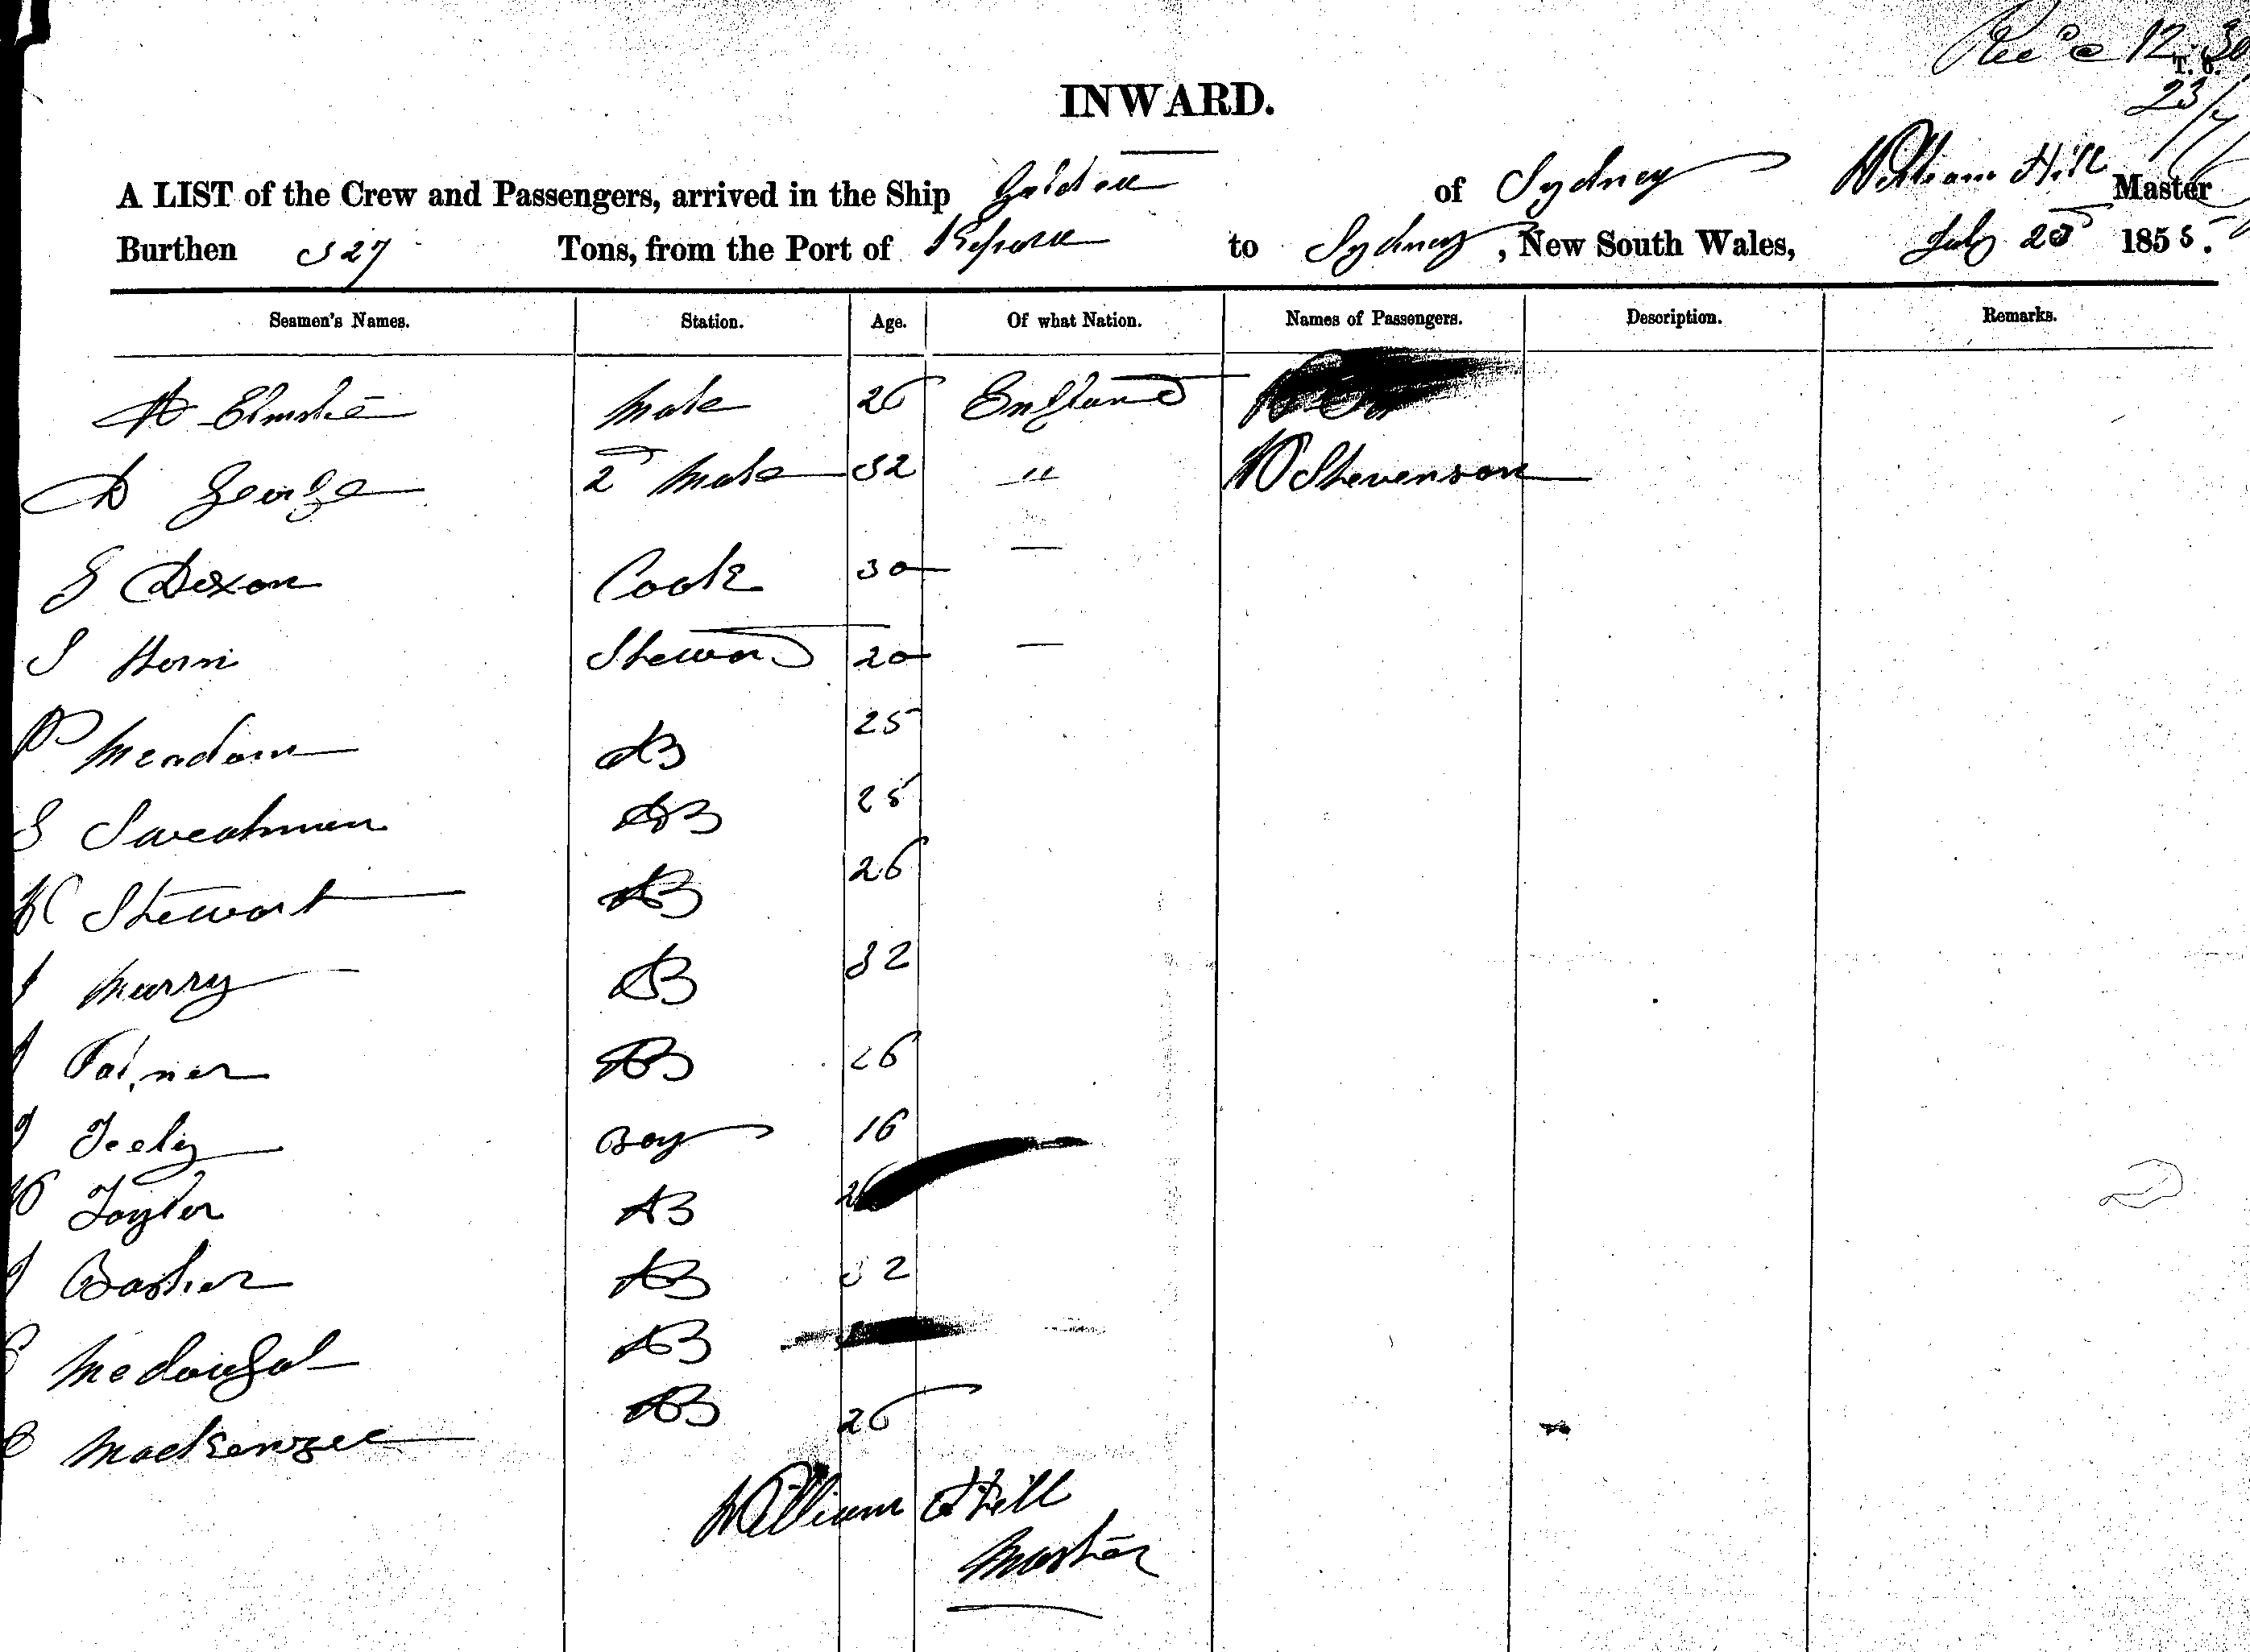 12.30
T. 6.
23/7
INWARD.
A LIST of the Crew and Passengers, arrived in the Ship of Sydney William Hill Master
Burthen 327 Tons, from the Port of to Sydney, New South Wales, July 23 1855.
Seamen's Names. Station. Age. Of what Nation. Names of Passengers. Description. Remarks.
Mate 26 England
D George 2d Mate 32 " W Stevenson
G Dixon Cook 30 —
S Horn Steward 20 —
AB 25
S Sweatman AB 25
Stewart AB 26
J Murry AB 32
J AB 26
J Feely Boy 16
W Taylor AB
J AB 32
McDougal AB
C Mackenzee AB 26
William Hill
Master